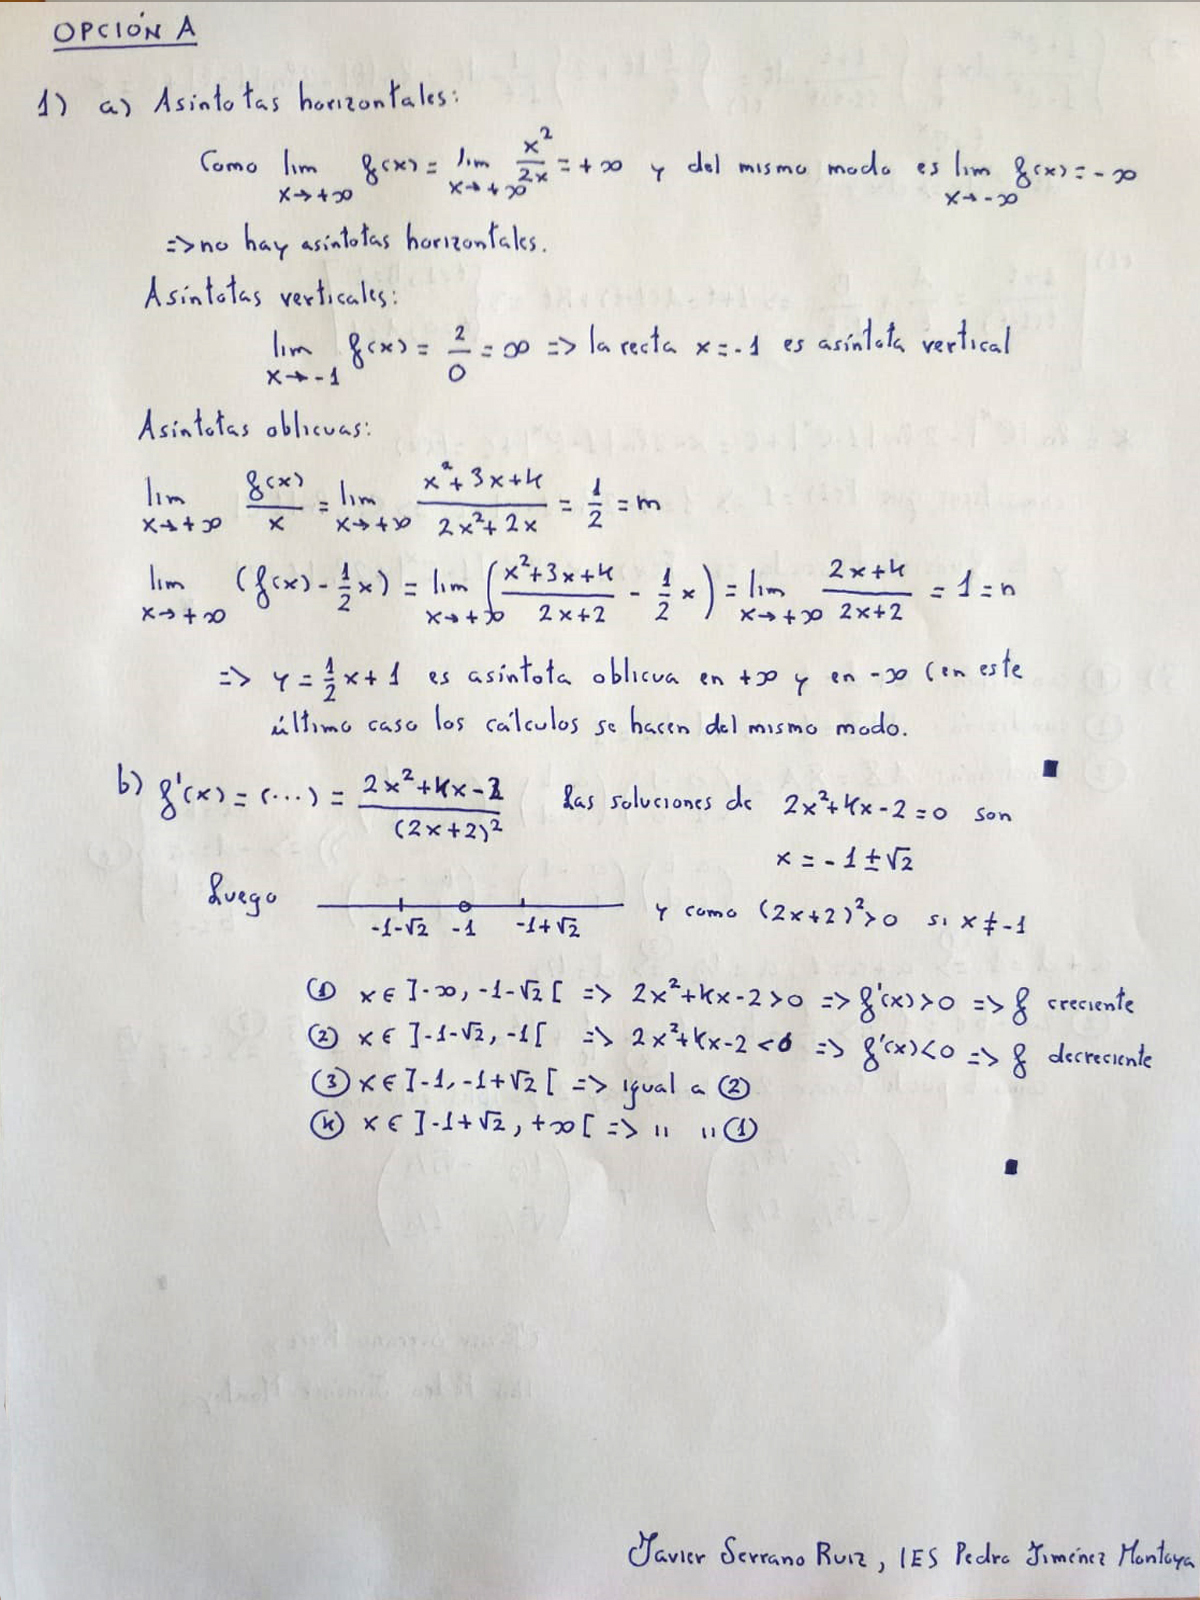 OPCIÓN A
1) a) Asíntotas horizontales:
Como lim x→+∞ f(x) = lim x→+∞ x²/2x = +∞ y del mismo modo es lim x→-∞ f(x) = -∞
=> no hay asíntotas horizontales.
Asíntotas verticales:
lim x→-1 f(x) = 2/0 = ∞ => la recta x = -1 es asíntota vertical
Asíntotas oblicuas:
lim x→+∞ f(x)/x = lim x→+∞ (x²+3x+4)/(2x²+2x) = 1/2 = m
lim x→+∞ (f(x) - 1/2 x) = lim x→+∞ ((x²+3x+4)/(2x+2) - 1/2 x) = lim x→+∞ (2x+4)/(2x+2) = 1 = n
=> y = 1/2 x + 1 es asíntota oblicua en +∞ y en -∞ (en este
último caso los cálculos se hacen del mismo modo.
b) f'(x) = (...) = (2x²+4x-2)/(2x+2)² Las soluciones de 2x²+4x-2=0 son
x = -1±√2
Luego -1-√2 -1 -1+√2 y como (2x+2)²>0 si x≠-1
(1) x ∈ ]-∞, -1-√2[ => 2x²+4x-2>0 => f'(x)>0 => f creciente
(2) x ∈ ]-1-√2, -1[ => 2x²+4x-2<0 => f'(x)<0 => f decreciente
(3) x ∈ ]-1, -1+√2[ => igual a (2)
(4) x ∈ ]-1+√2, +∞[ => " " (1)
Javier Serrano Ruiz, IES Pedro Jiménez Montoya